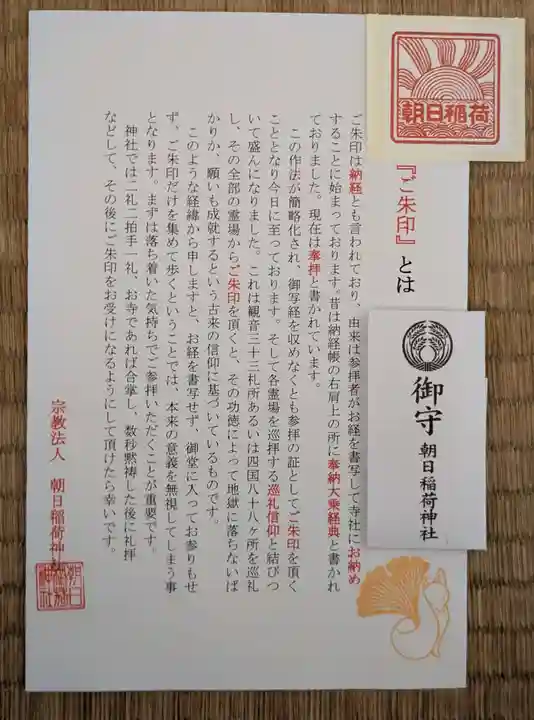 朝日稲荷
『ご朱印』とは
ご朱印は納経とも言われており、由来は参拝者がお経を書写して寺社にお納め
することに始まっております。昔は納経帳の右肩上の所に奉納大乗経典と書かれ
ておりました。現在は奉拝と書かれています。
この作法が簡略化され、御写経を収めなくとも参拝の証としてご朱印を頂く
こととなり今日に至っております。そして各霊場を巡拝する巡礼信仰と結びつ
いて盛んになりました。これは観音三十三札所あるいは四国八十八ヶ所を巡礼
し、その全部の霊場からご朱印を頂くと、その功徳によって地獄に落ちないば
かりか、願いも成就するという古来の信仰に基づいているものです。
このような経緯から申しますと、お経を書写せず、御堂に入ってお参りもせ
ず、ご朱印だけを集めて歩くということでは、本来の意義を無視してしまう事
となります。まずは落ち着いた気持ちでご参拝いただくことが重要です。
神社では二礼二拍手一礼、お寺であれば合掌し、数秒黙祷した後に礼拝
などして、その後にご朱印をお受けになるようにして頂けたら幸いです。
宗教法人 朝日稲荷神社
御守
朝日稲荷神社